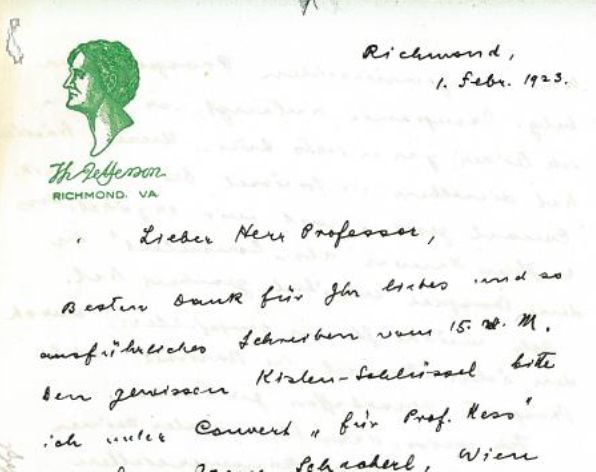 Richmond,
1. Febr. 1923.
The Jefferson
RICHMOND, VA.
Lieber Herr Professor,
Besten Dank für Ihr liebes und so
ausführliches Schreiben vom 15. v. M.
Den gewissen Kisten-Schlüssel bitte
ich unter Couvert „für Prof. Hess"
Wien